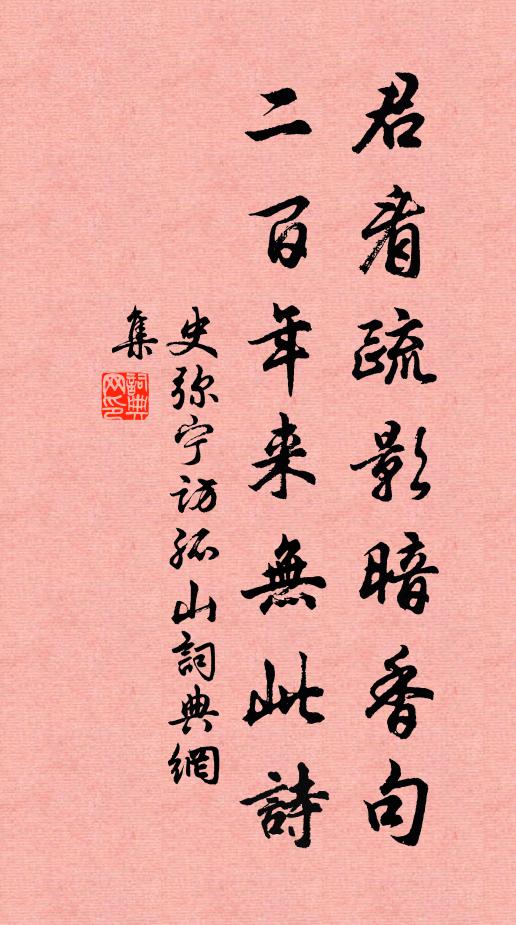 君看疏影暗香句
二百年来無此詩
史弥宁訪孤山詞典網
集
詞典网印